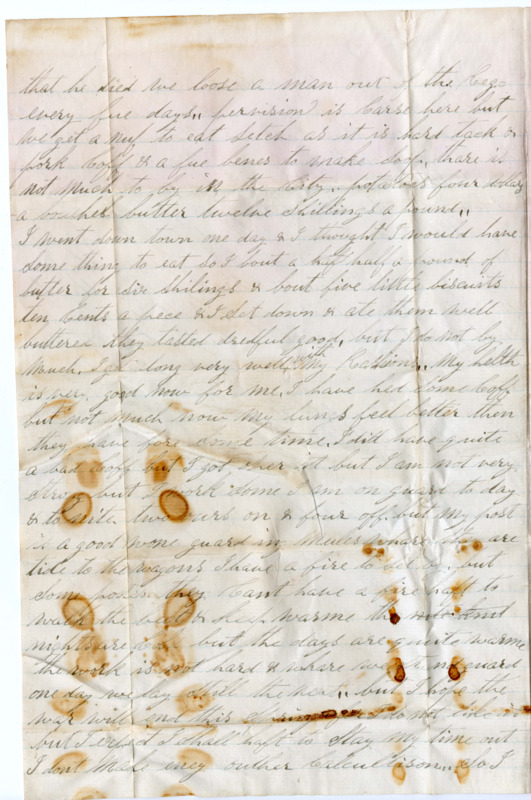 that he died we loose a man out of the Reg
every five days,, pervision is Carse here but
we get a nuf to eat setch as it is hard tack &
pork Coff & a fue benes to make soop, thare is
not much to by in the City, potatoes four dolar
a boushel butter twelve Shillings a pound,,
I went down town one day & I thought I would have
some thing to eat so I bout a half a pound of
butter for six shilings & bout five little biscuits
ten Cents a pece & I set down & ate them well
buttered they tasted dredful good, but I do not by
much, I git long very well with my Rassions,, My helth
is very good now for me, I have hed some Coff
but not much now my lungs feel better then
they have fore some time, I did have quite
a bad Coff but I got over it but I am not very
strong but I work some I am on guard to day
& to nite two ours on & four off but my post
is a good wone guard ing Mules whare they are
tide to the wagons I have a fire to set by but
some posts they Cant have a fire haft to
walk the beet & keep warme the
nights are but the days are quite warme
the work is not hard & whare we guard
one day we lay still the next,, but I hope the
war will end this spring I do not like it
but I expect I shall haft to stay my time out
I dont make eney outher Calculation,, So I